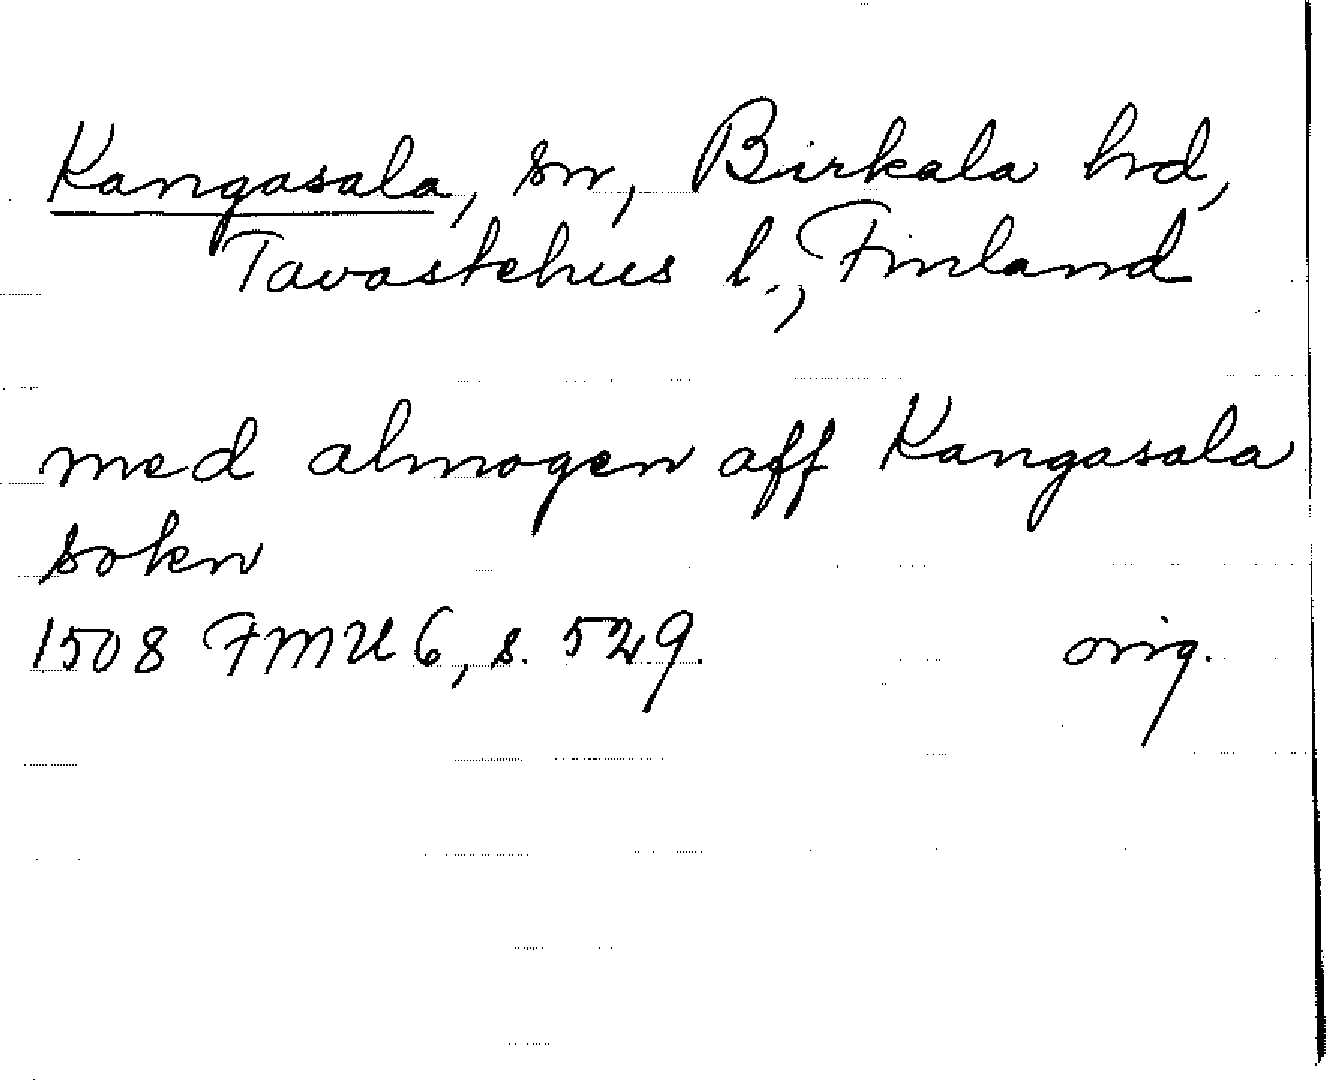 Kangasala, sn, Birkala hd,
Tavastehus l., Finland
med almogen aff Kangasala
sokn
1508 FMU 6, s. 529. orig.